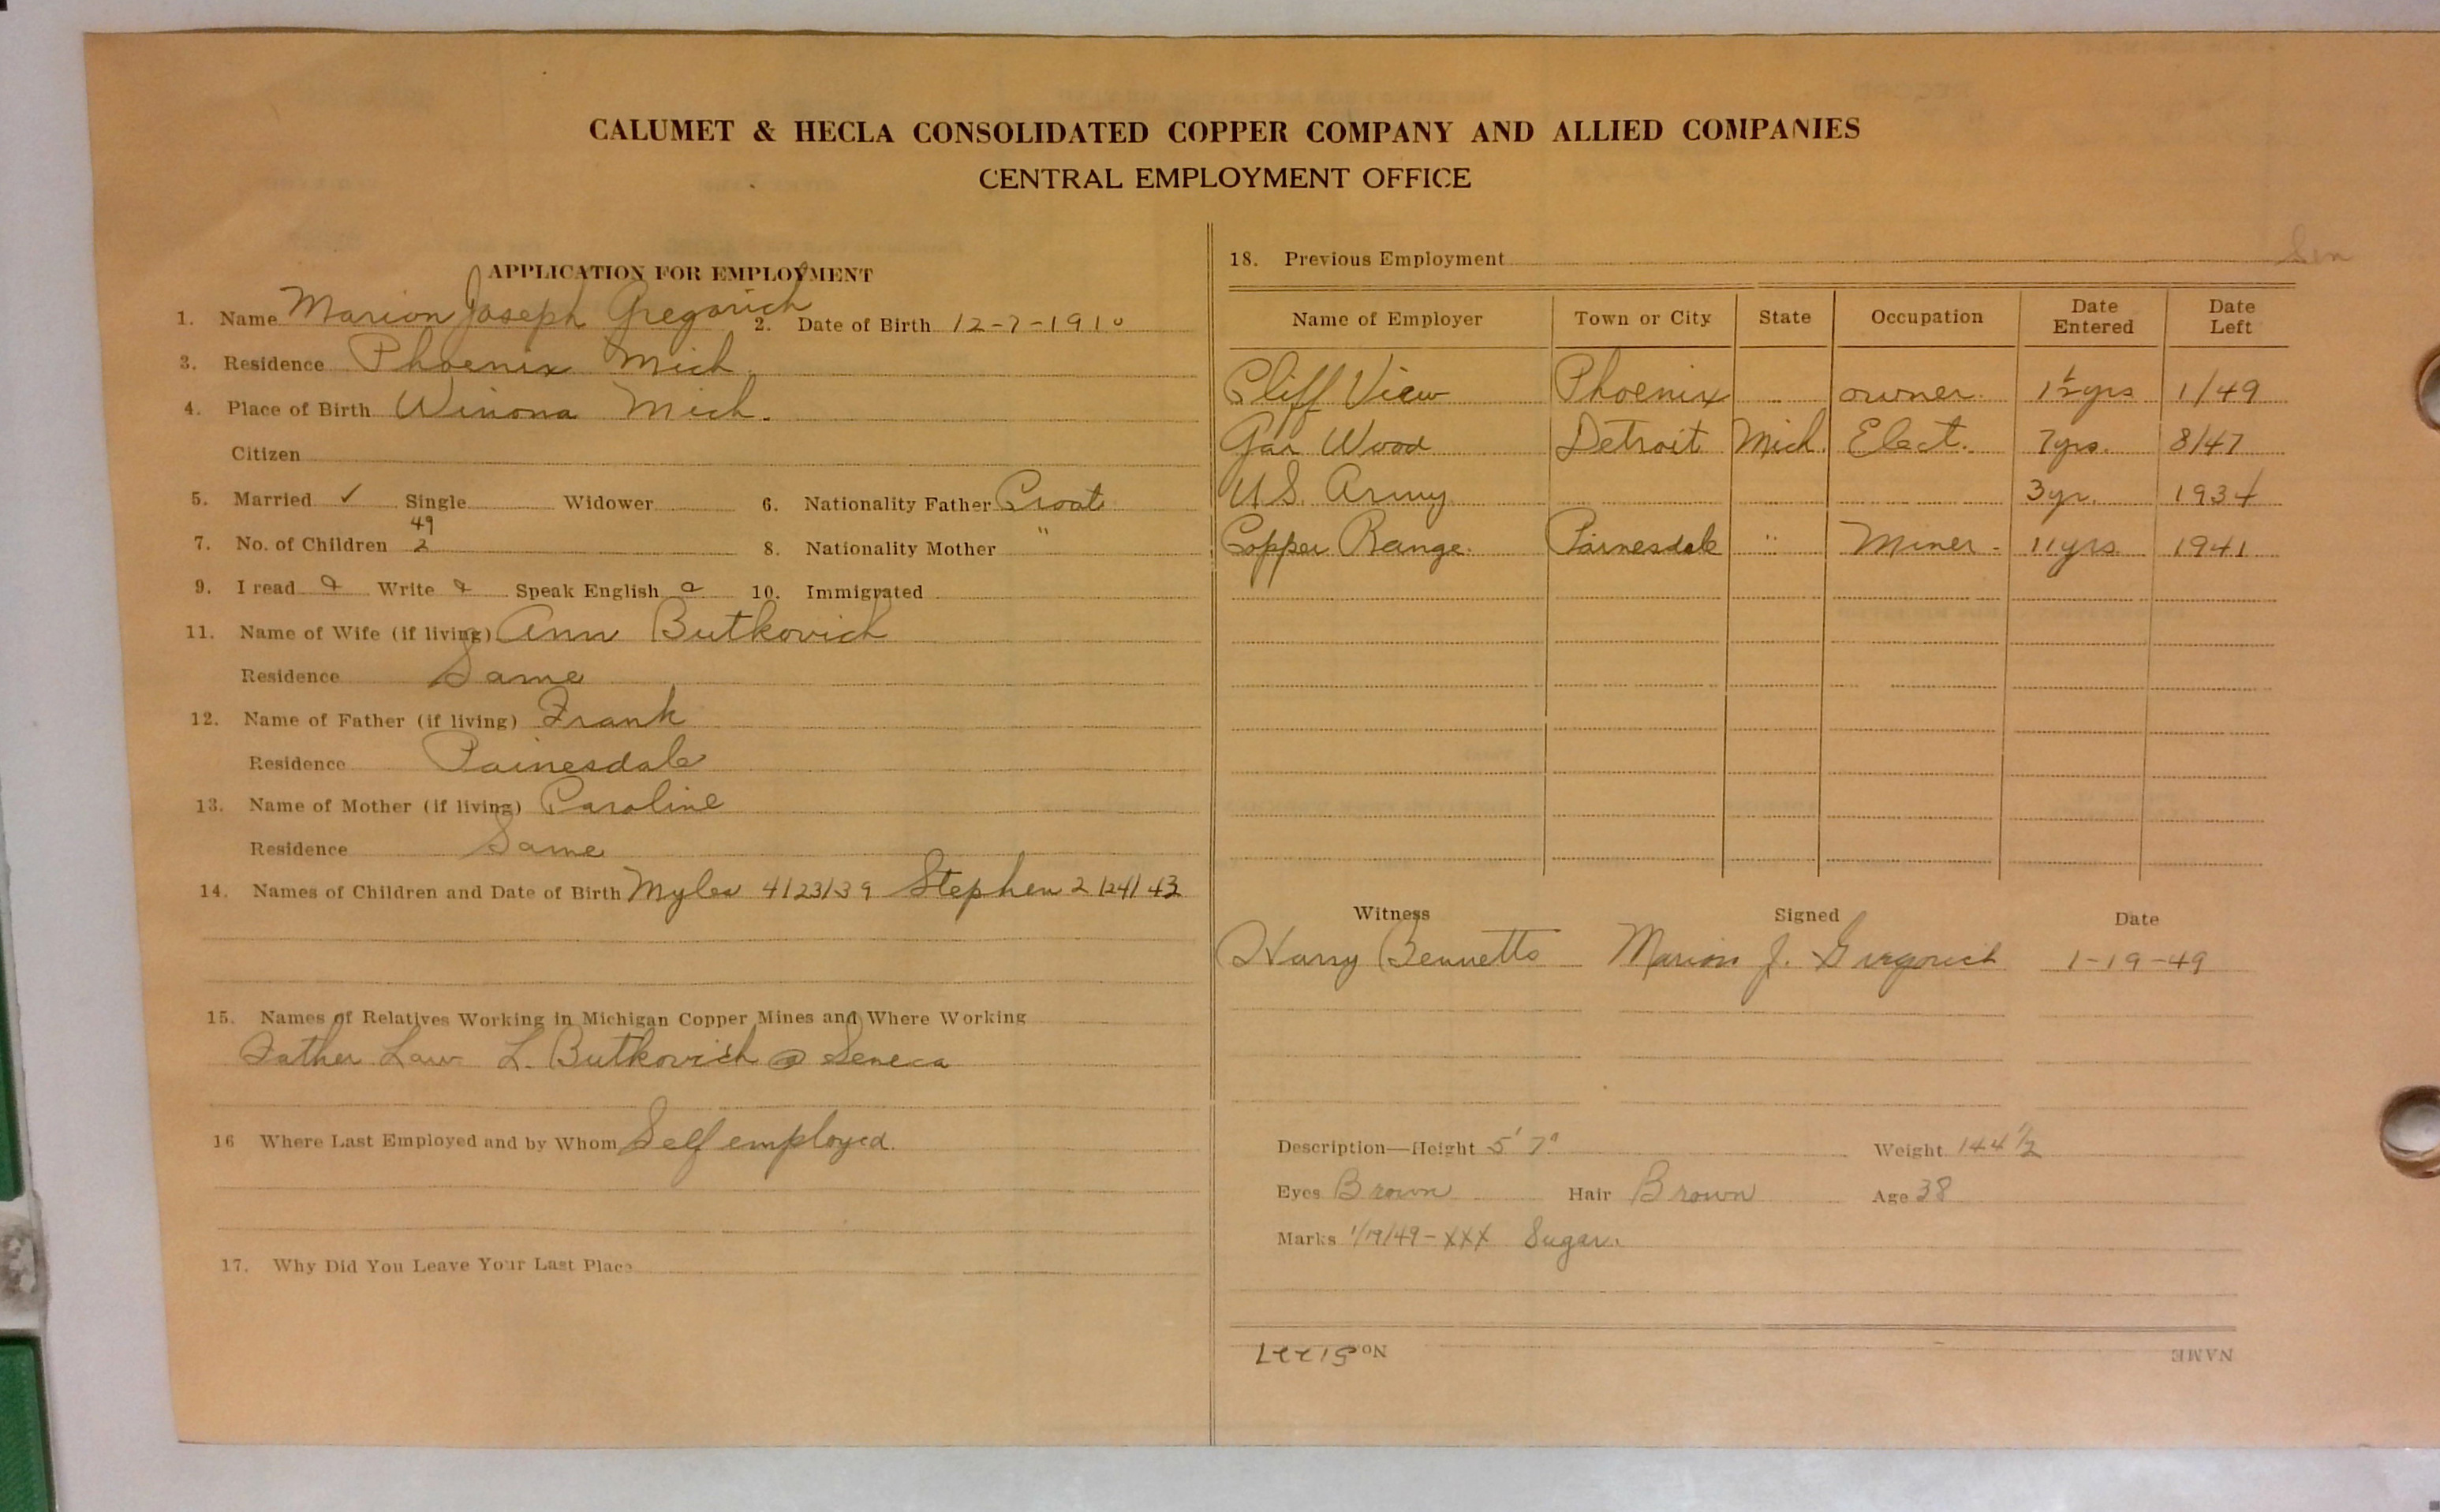 CALUMET & HECLA CONSOLIDATED COPPER COMPANY AND ALLIED COMPANIES
CENTRAL EMPLOYMENT OFFICE
APPLICATION FOR EMPLOYMENT
1. Name Marion Joseph Gregorich 2. Date of Birth 12-7-1910
3. Residence Phoenix Mich.
4. Place of Birth Winona Mich.
Citizen
5. Married ✓ Single Widower 6. Nationality Father Croat
49
7. No. of Children 2 8. Nationality Mother "
9. I read Write Speak English 10. Immigrated
11. Name of Wife (if living) Ann Butkovich
Residence Same
12. Name of Father (if living) Frank
Residence Painesdale
13. Name of Mother (if living) Caroline
Residence Same
14. Names of Children and Date of Birth Myles 4/23/39 Stephen 2/24/43
15. Names of Relatives Working in Michigan Copper Mines and Where Working
Father Law L. Butkovich @ Seneca
16 Where Last Employed and by Whom Self employed.
17. Why Did You Leave Your Last Place
Sen
18. Previous Employment
Name of Employer Town or City State Occupation Date Entered Date Left
Cliff View Phoenix owner. 1½ yrs 1/49
Gar Wood Detroit Mich. Elect. 7 yrs. 8/47
U.S. Army 3 yr. 1934
Copper Range. Painesdale " Miner - 11 yrs 1941
Witness Signed Date
Harry Bennetts Marion J. Gregorich 1-19-49
Description—Height 5' 7" Weight 144 1/2
Eyes Brown Hair Brown Age 38
Marks 1/19/49 - XXX Sugar.
NAME No.